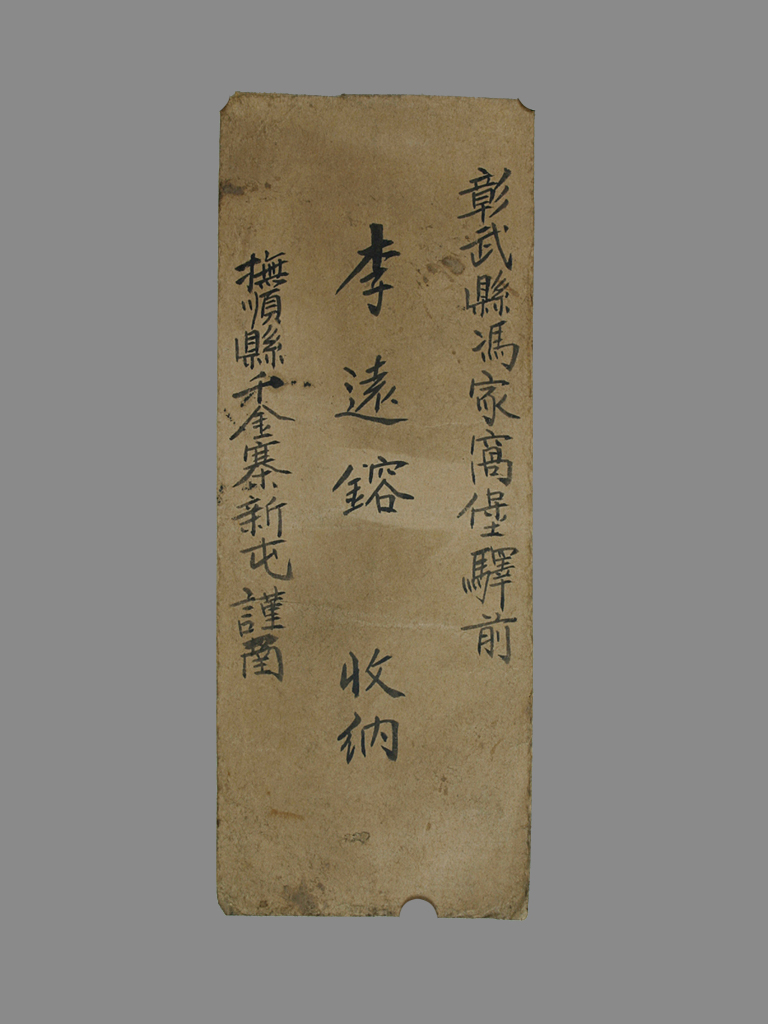 彰武縣馮家窩堡驛前
李遠鎔 收納
撫順縣千金寨新屯謹